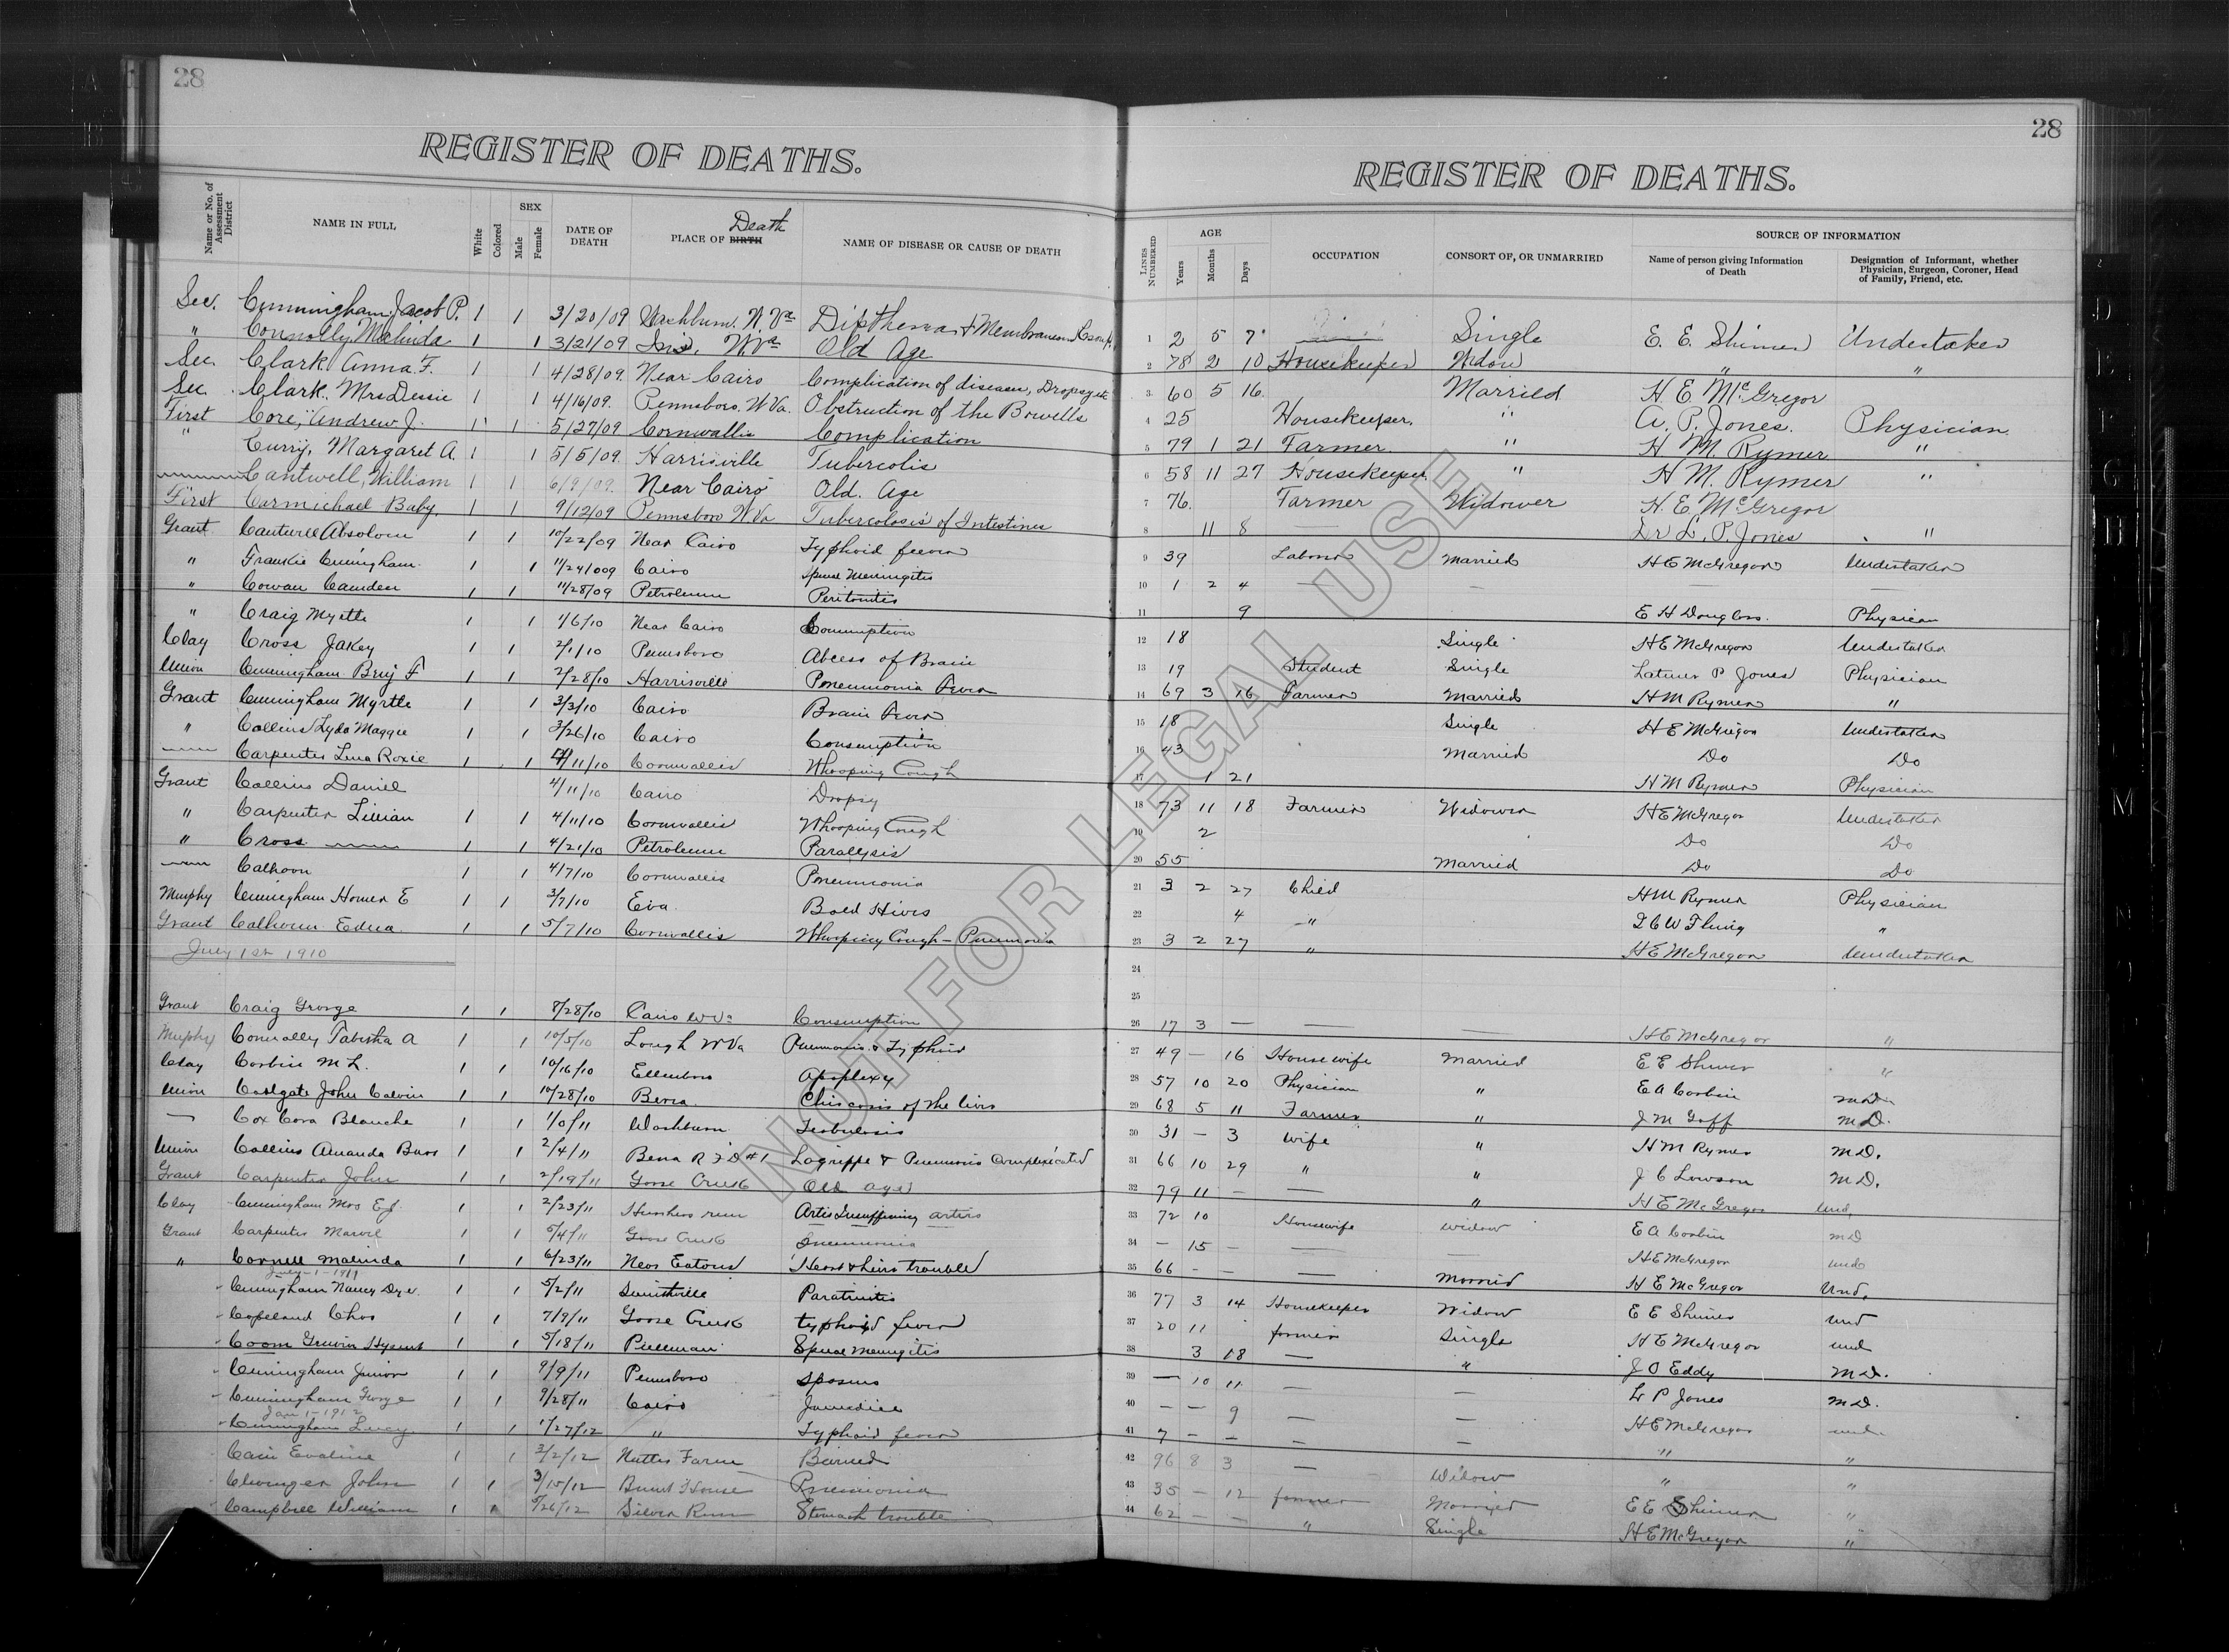 28
REGISTER OF DEATHS.
Name or No. of Assessment District
NAME IN FULL
White
Colored
SEX
Male
Female
DATE OF DEATH
PLACE OF BIRTH Death
NAME OF DISEASE OR CAUSE OF DEATH
Sec. Cunningham, Jacob P. 1 1 3/20/09 Washburn. W. Va Diptherea & Membraneous Croup
" Connolly Malinda 1 1 3/21/09 W. Va Old Age
Sec. Clark. Anna F. 1 1 4/28/09. Near Cairo Complication of diseases, Dropsy etc
Sec. Clark. Mrs Dessie 1 1 4/16/09. Pennsboro. W Va. Obstruction of the Bowells
First Core, Andrew J. 1 1 5/27/09 Cornwallis Complication
" Curry, Margaret A. 1 1 5/5/09. Harrisville Tubercolis
Cantwell, William 1 1 6/9/09. Near Cairo Old. Age
First Carmichael Baby, 1 1 9/12/09 Pennsboro W Va Tubercolosis of Intestines
Grant Cantwell Absolom 1 1 10/22/09 Near Cairo Typhoid feever
" Frankie Cuningham. 1 1 11/24/009 Cairo Spinal Meningitis
" Cowan Camden 1 1 11/28/09 Petroleum Peritonitis
" Craig Myrtle 1 1 1/6/10 Near Cairo Consumption
Clay Cross Jakey 1 1 2/1/10 Pennsboro Abcess of Brain
Union Cunningham Benj F 1 1 2/28/10 Harrisville Pneumonia Fever
Grant Cunningham Myrtle 1 1 3/3/10 Cairo Brain Fever
" Collins Lyda Maggie 1 1 3/26/10 Cairo Consumption
Carpenter Lena Roxie 1 1 4/11/10 Cornwallis Whooping Cough
Grant Collins Daniel 4/11/10 Cairo Dropsy
" Carpenter Lillian 1 1 4/11/10 Cornwallis Whooping Cough
" Cross 1 1 4/21/10 Petroleum Parallysis
Calhoon 1 1 4/7/10 Cornwallis Pneumonia
Murphy Cuningham Homer E 1 1 3/7/10 Eva Bold Hives
Grant Calhoun Edna 1 1 5/7/10 Cornwallis Whooping Cough - Pneumonia
July 1st 1910
Grant Craig George 1 1 8/28/10 Cairo W Va Consumption
Murphy Connally Tabitha A 1 1 10/5/10 Lough W Va Pneumonia & Typhoid
Clay Corbin M L. 1 1 10/16/10 Ellenboro Apoplexy
Union John Calvin 1 1 10/28/10 Berea of the liver
— Cox Cora Blanche 1 1 Washburn
Union Collins Amanda 1 1 2/4/11 Berea R F D #1 Lagrippe & Pneumonia Complexicated
Grant Carpenter John 1 1 2/19/11 Goose Creek Old age
Clay Cuningham Mrs E J. 1 1 2/23/11 run
Grant Carpenter 1 1 5/4/11 Goose Creek Pneumonia
" Cornell Malinda 1 1 6/23/11 Near Eatons Heart & trouble
July-1-1911
Cuningham Nancy 1 1 5/2/11 Smithville
Copeland Chas 1 1 7/9/11 Goose Creek typhoid fever
Coom 1 1 5/18/11 Pullman Spinal Meningitis
Cuningham Junior 1 1 9/9/11 Pennsboro Spasms
Cuningham George 1 1 9/28/11 Cairo Jaundice
Jan 1-1912
Cuningham Lucy 1 1 1/27/12 " Typhoid fever
Cain Evaline 1 1 3/2/12 Nutter Farm Burned
Clevinger John 1 1 3/15/12 Burnt House Pneumonia
Campbell William 1 1 5/26/12 Silver Run Stomach trouble
28
REGISTER OF DEATHS.
LINES NUMBERED
AGE
Years
Months
Days
OCCUPATION
CONSORT OF, OR UNMARRIED
SOURCE OF INFORMATION
Name of person giving Information of Death
Designation of Informant, whether Physician, Surgeon, Coroner, Head of Family, Friend, etc.
1 2 5 7 Single E. E. Shimer Undertaker
2 78 2 10 Housekeeper Widow " "
3 60 5 16. Married H. E. McGregor
4 25 Housekeeper, " A. P. Jones. Physician
5 79 1 21 Farmer. " H M. Rymer "
6 58 11 27 Housekeeper " H M. Rymer "
7 76. Farmer Widower H. E. McGregor
8 11 8 — Dr L. P. Jones "
9 39 Laborer Married H E McGregor Undertaker
10 1 2 4 — — —
11 9 E H Douglass. Physican
12 18 Single H E McGregor Undertaker
13 19 Student Single Latimer P Jones Physician
14 69 3 16 Farmer Married H M Rymer "
15 18 Single H E McGregor Undertaker
16 43 Married Do Do
17 1 21 H M Rymer Physician
18 73 11 18 Farmer Widower H E McGregor Undertaker
19 2 Do Do
20 55 Married Do Do
21 3 2 27 Child H M Rymer Physician
22 4 —" "
23 3 2 27 " H E McGregor Undertaker
24
25
26 17 3 — — — H E McGregor "
27 49 — 16 Housewife Married E E Shimer "
28 57 10 20 Physician " E A Corbin M D.
29 68 5 11 Farmer " J M Goff M D.
30 31 — 3 Wife " H M Rymer M D.
31 66 10 29 " " J C Lowson M D.
32 79 11 — — " H E McGregor Und,
33 72 10 Housewife Widow E A Corbin M D
34 — 15 — — — H E McGregor und
35 66 - - — Married H E McGregor Und,
36 77 3 14 Housekeeper Widow E E Shimer und
37 20 11 farmer Single H E McGregor und
38 3 18 — " J O Eddy M D.
39 — 10 11 — — L P Jones M D.
40 — — 9 — — H E McGregor und.
41 7 - - — — " "
42 96 8 3 — Widow " "
43 35 — 12 farmer Married E E Shimer "
44 62 — — " Single H E McGregor "
NOT FOR LEGAL USE